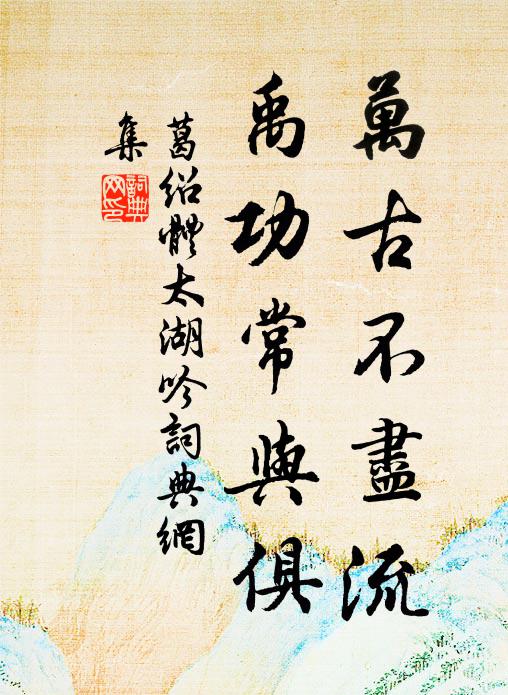 萬古不盡流
禹功常與俱
葛紹體太湖吟詞典網
集
詞典
网印